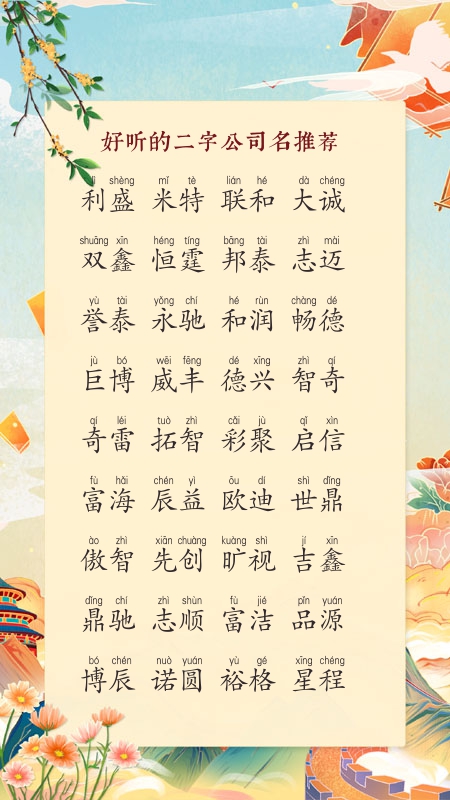 好听的二字公司名推荐
lì shèng mǐ tè lián hé dà chéng
利盛 米特 联和 大诚
shuāng xīn héng tíng bāng tài zhì mài
双鑫 恒霆 邦泰 志迈
yù tài yǒng chí hé rùn chàng dé
誉泰 永驰 和润 畅德
jù bó wēi fēng dé xīng zhì qí
巨博 威丰 德兴 智奇
qí léi tuò zhì cǎi jù qǐ xìn
奇雷 拓智 彩聚 启信
fù hǎi chén yì ōu dí shì dǐng
富海 辰益 欧迪 世鼎
ào zhì xiān chuàng kuàng shì jí xīn
傲智 先创 旷视 吉鑫
dǐng chí zhì shùn fù jié pǐn yuán
鼎驰 志顺 富洁 品源
bó chén nuò yuán yù gé xīng chéng
博辰 诺圆 裕格 星程